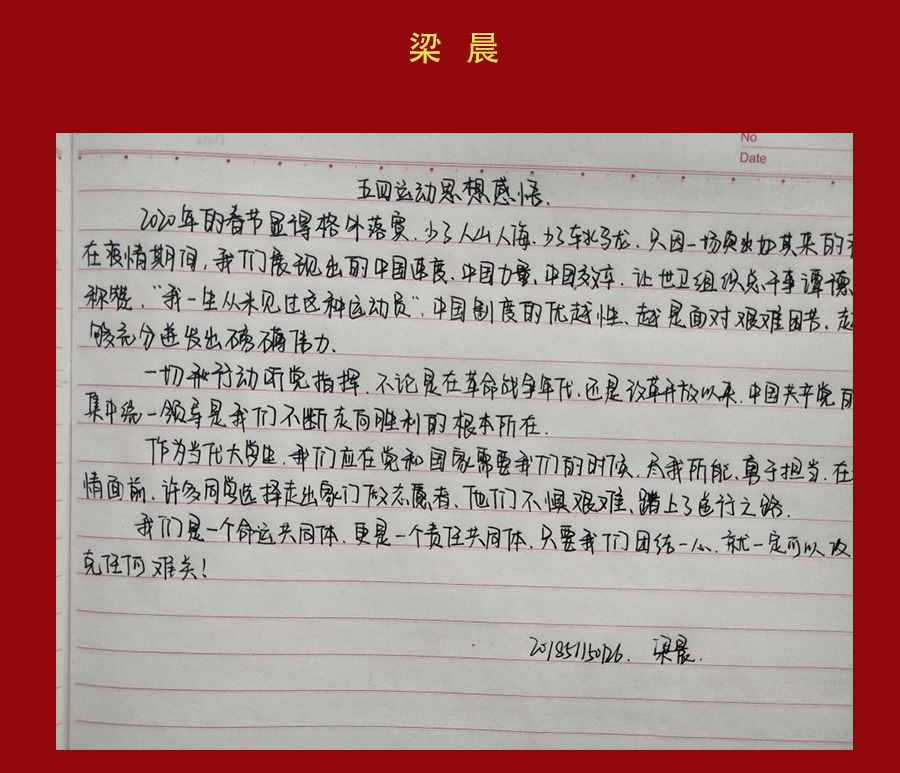 梁 晨
No
Date
五四运动思想感悟.
2020年的春节显得格外落寞.少了人山人海.少了车水马龙.只因一场突如其来的
在疫情期间,我们展现出的中国速度.中国力量.中国效率.让世卫组织总干事谭德
称赞,“我一生从未见过这种运动员”.中国制度的优越性、越是面对艰难困苦,越
够充分迸发出磅礴伟力.
一切行动听党指挥.不论是在革命战争年代.还是改革开放以来.中国共产党
集中统一领导是我们不断走向胜利的根本所在.
作为当代大学生.我们应在党和国家需要我们的时候.尽我所能.勇于担当.在
情面前.许多同学选择走出家门做志愿者.他们不惧艰难.踏上了逆行之路.
我们是一个命运共同体.更是一个责任共同体.只要我们团结一心.就一定可以攻
克任何难关!
20185115026. 梁晨.